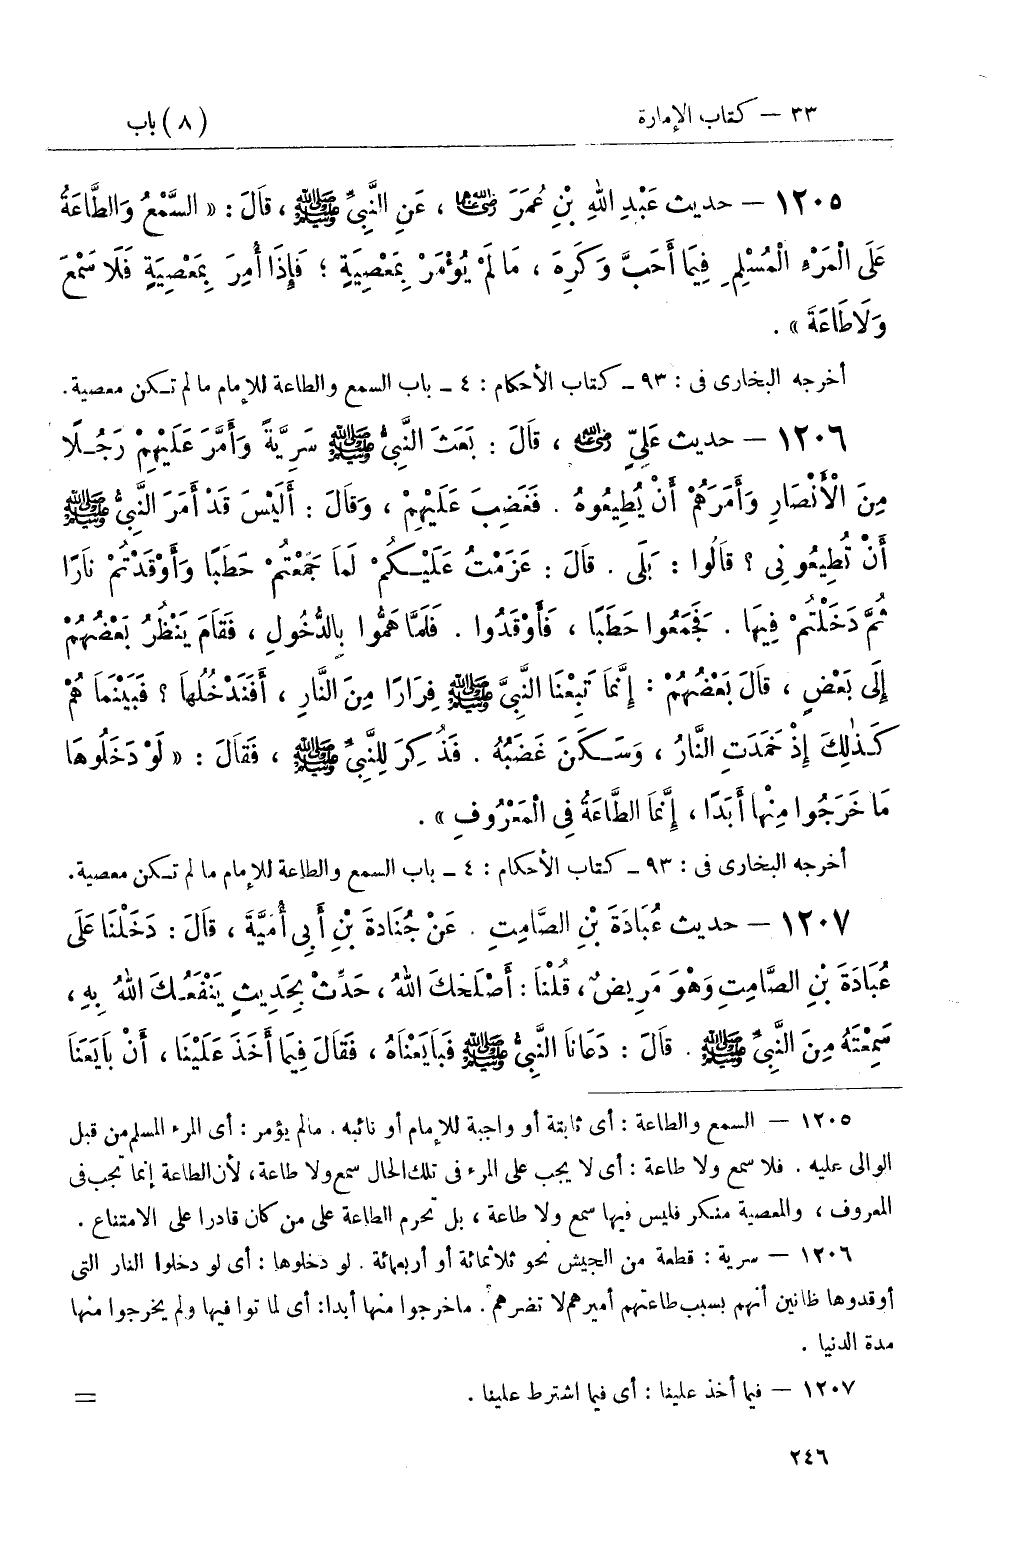 ٣٣ – كتاب الإمارة (٨) باب
١٢٠٥ – حديث عَبْدِ اللهِ بْنِ عُمَرَ رضي الله عنهما ، عَنِ النَّبِيِّ ﷺ ، قَالَ : « السَّمْعُ وَالطَّاعَةُ
عَلَى الْمَرْءِ الْمُسْلِمِ فِيمَا أَحَبَّ وَكَرِهَ ، مَا لَمْ يُؤْمَرْ بِمَعْصِيَةٍ ؛ فَإِذَا أُمِرَ بِمَعْصِيَةٍ فَلَا سَمْعَ
وَلَا طَاعَةَ » .
أخرجه البخارى فى : ٩٣ – كتاب الأحكام : ٤ – باب السمع والطاعة للإمام ما لم تكن معصية .
١٢٠٦ – حديث عَلِيٍّ رضي الله عنه ، قَالَ : بَعَثَ النَّبِيُّ ﷺ سَرِيَّةً وَأَمَّرَ عَلَيْهِمْ رَجُلًا
مِنَ الْأَنْصَارِ وَأَمَرَهُمْ أَنْ يُطِيعُوهُ . فَغَضِبَ عَلَيْهِمْ ، وَقَالَ : أَلَيْسَ قَدْ أَمَرَ النَّبِيُّ ﷺ
أَنْ تُطِيعُونِى ؟ قَالُوا : بَلَى . قَالَ : عَزَمْتُ عَلَيْكُمْ لَمَا جَمَعْتُمْ حَطَبًا وَأَوْقَدْتُمْ نَارًا
ثُمَّ دَخَلْتُمْ فِيهَا . فَجَمَعُوا حَطَبًا ، فَأَوْقَدُوا . فَلَمَّا هَمُّوا بِالدُّخُولِ ، فَقَامَ يَنْظُرُ بَعْضُهُمْ
إِلَى بَعْضٍ ، قَالَ بَعْضُهُمْ : إِنَّمَا تَبِعْنَا النَّبِيَّ ﷺ فِرَارًا مِنَ النَّارِ ، أَفَنَدْخُلُهَا ؟ فَبَيْنَمَا هُمْ
كَذٰلِكَ إِذْ خَمَدَتِ النَّارُ ، وَسَكَنَ غَضَبُهُ . فَذُكِرَ لِلنَّبِيِّ ﷺ ، فَقَالَ : « لَوْ دَخَلُوهَا
مَا خَرَجُوا مِنْهَا أَبَدًا ، إِنَّمَا الطَّاعَةُ فِى الْمَعْرُوفِ » .
أخرجه البخارى فى : ٩٣ – كتاب الأحكام : ٤ – باب السمع والطاعة للإمام ما لم تكن معصية .
١٢٠٧ – حديث عُبَادَةَ بْنِ الصَّامِتِ . عَنْ جُنَادَةَ بْنِ أَبِى أُمَيَّةَ ، قَالَ : دَخَلْنَا عَلَى
عُبَادَةَ بْنِ الصَّامِتِ وَهْوَ مَرِيضٌ ، قُلْنَا : أَصْلَحَكَ اللهُ ، حَدِّثْ بِحَدِيثٍ يَنْفَعُكَ اللهُ بِهِ ،
سَمِعْتَهُ مِنَ النَّبِيِّ ﷺ . قَالَ : دَعَانَا النَّبِيُّ ﷺ فَبَايَعْنَاهُ ، فَقَالَ فِيمَا أَخَذَ عَلَيْنَا ، أَنْ بَايَعَنَا
١٢٠٥ – السمع والطاعة : أى ثابتة أو واجبة للإمام أو نائبه . مالم يؤمر : أى المرء المسلم من قبل
الوالى عليه . فلا سمع ولا طاعة : أى لا يجب على المرء فى تلك الحال سمع ولا طاعة ، لأن الطاعة إنما تجب فى
المعروف ، والمعصية منكر فليس فيها سمع ولا طاعة ، بل تحرم الطاعة على من كان قادرا على الامتناع .
١٢٠٦ – سرية : قطعة من الجيش نحو ثلاثمائة أو أربعمائة . لو دخلوها : أى لو دخلوا النار التى
أوقدوها ظانين أنهم بسبب طاعتهم أميرهم لا تضرهم . ماخرجوا منها أبدا : أى لماتوا فيها ولم يخرجوا منها
مدة الدنيا .
١٢٠٧ – فيما أخذ علينا : أى فيما اشترط علينا . =
٢٤٦